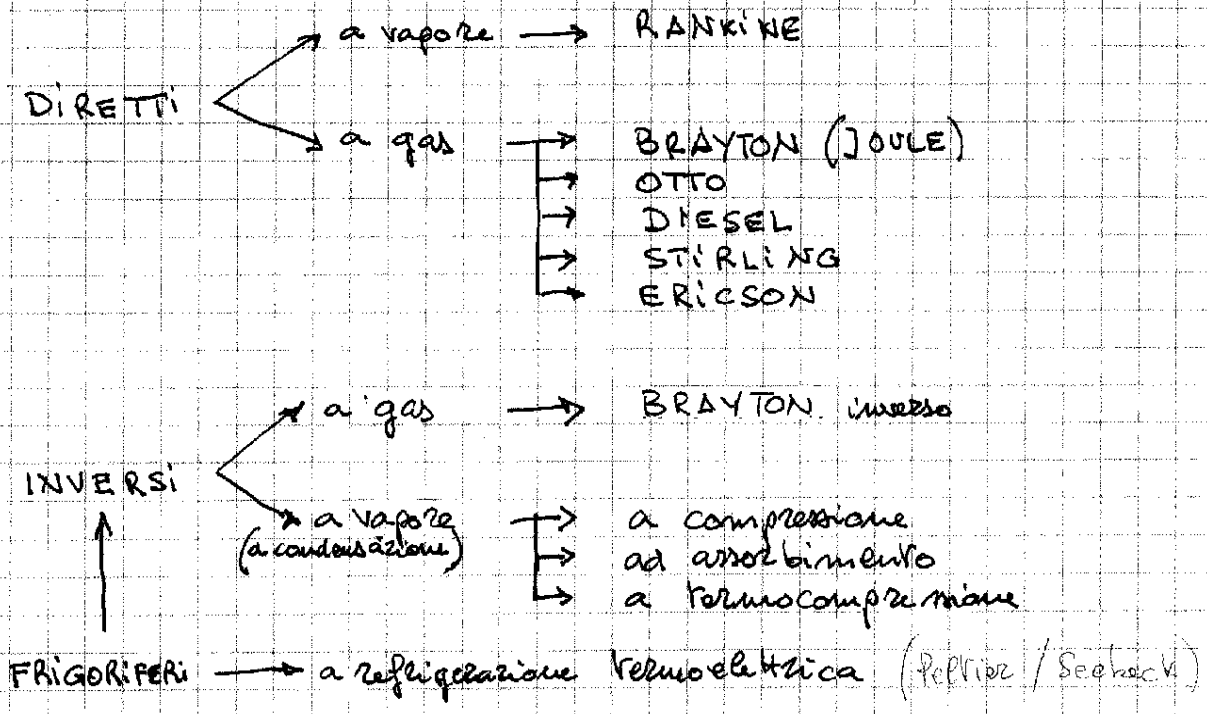 a vapore → RANKINE
DIRETTI
a gas → BRAYTON (JOULE)
→ OTTO
→ DIESEL
→ STIRLING
→ ERICSON
a gas → BRAYTON. inverso
INVERSI
a vapore → a compressione
(a condensazione) → ad assorbimento
→ a termocompressione
FRIGORIFERI → a refrigerazione termoelettrica (Peltier / Seebeck)